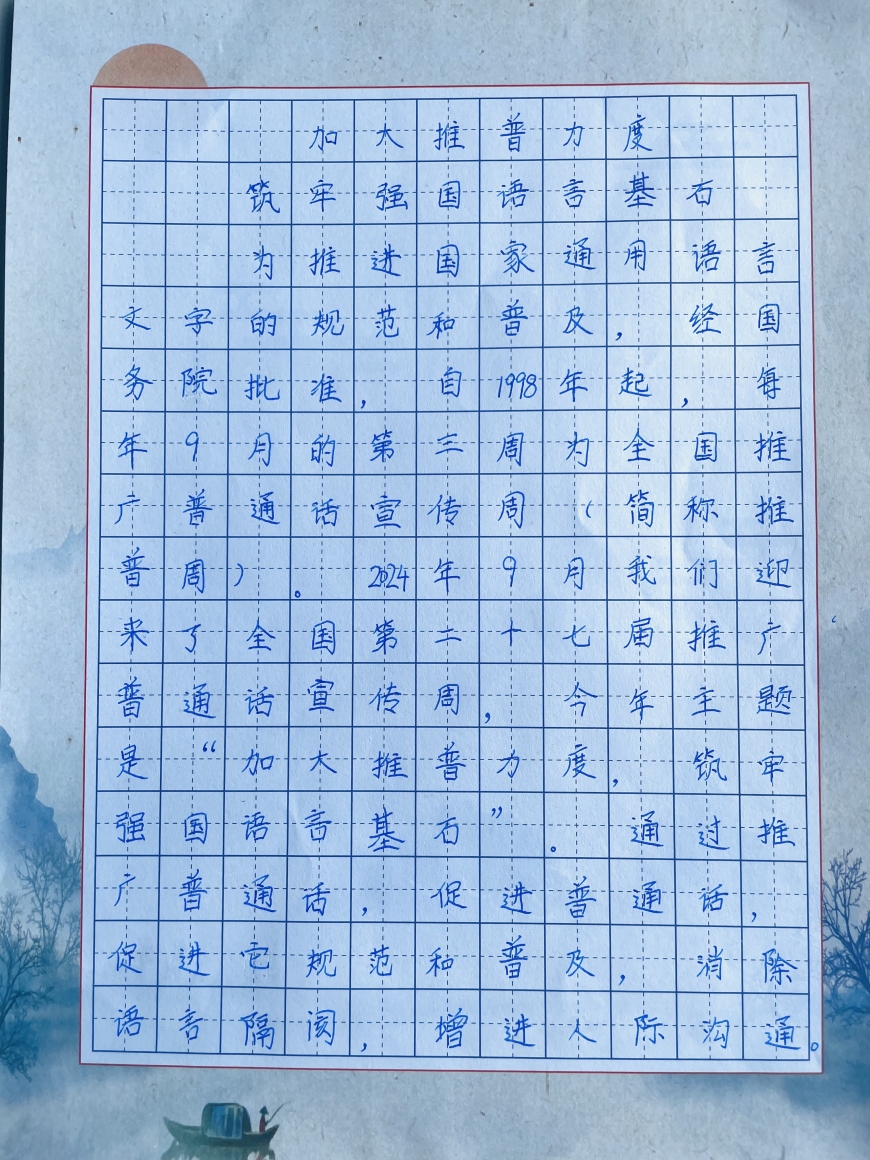 加大推普力度
筑牢强国语言基石
为推进国家通用语言
文字的规范和普及，经国
务院批准，自1998年起，每
年9月的第三周为全国推
广普通话宣传周（简称推
普周）。2024年9月我们迎
来了全国第二十七届推广
普通话宣传周，今年主题
是“加大推普力度，筑牢
强国语言基石”。通过推
广普通话，促进普通话，
促进它规范和普及，消除
语言隔阂，增进人际沟通。